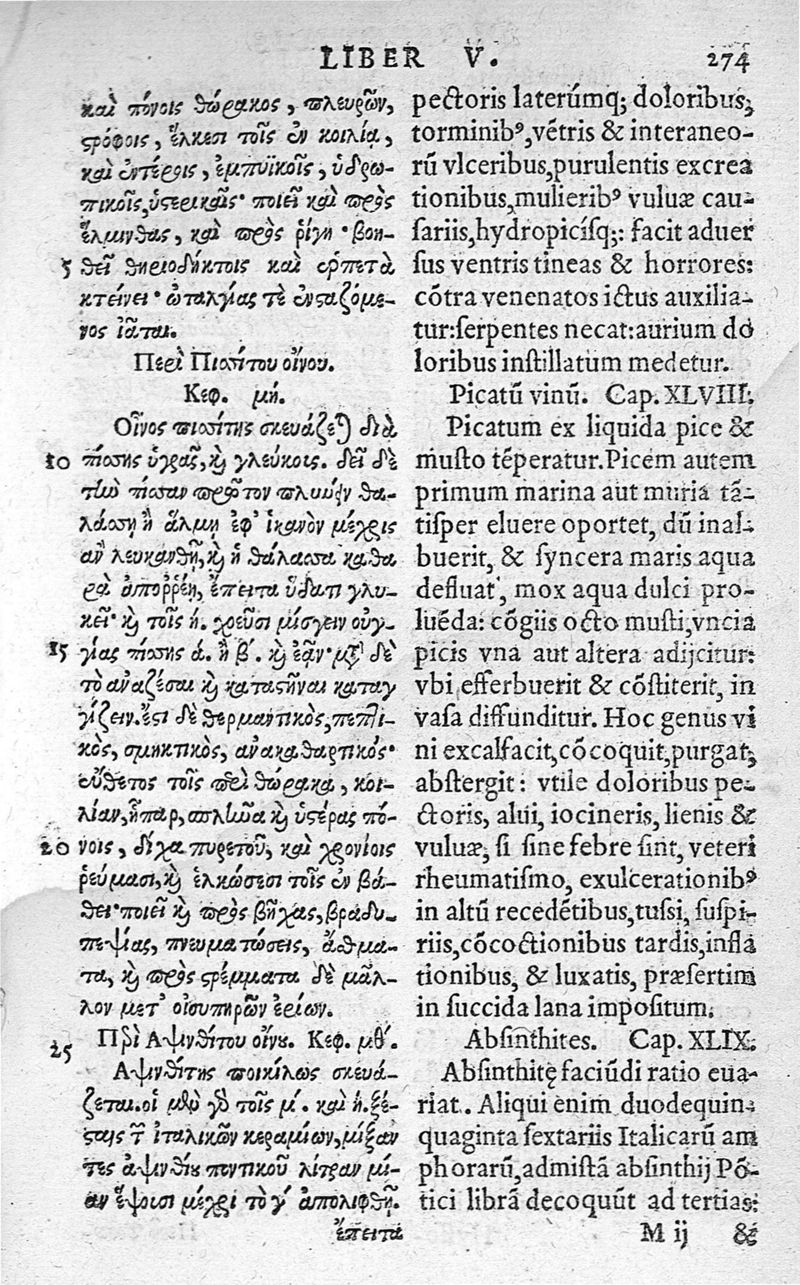 LIBER V. 274
καὶ πόνοις θώρακος, πλευρῶν,
στρόφοις, ἕλκεσι τοῖς ἐν κοιλίᾳ,
καὶ ἐντέροις, ἐμπυϊκοῖς, ὑδρω-
πικοῖς, ὑστερικαῖς· ποιεῖ καὶ πρὸς
ἕλμινθας, καὶ πρὸς ῥίγη· βοη-
5 θεῖ θηριοδήκτοις καὶ ἑρπετὰ
κτείνει· ὠταλγίας τὲ ἐνσταζόμε-
νος ἰᾶται.
Περὶ Πισσίτου οἴνου.
Κεφ. μή.
Οἶνος πισσίτης σκευάζεται διὰ
10 πίσσης ὑγρᾶς, καὶ γλεύκοις. δεῖ δὲ
τὴν πίσσαν πρῶτον πλύνειν θα-
λάσσῃ ἢ ἅλμῃ ἐφ' ἱκανὸν μέχρις
ἂν λευκανθῇ, καὶ ἡ θάλασσα καθα
ρὰ ἀποῤῥέῃ, ἔπειτα ὕδατι γλυ-
κεῖ· καὶ τοῖς ή. χρεῦσι μίσγειν οὐγ-
15 γίας πίσσης ά. ἢ β΄. καὶ ἐᾶν· μετὰ δὲ
τὸ ἀναζέσαι καὶ καταστῆναι καταγ
γίζειν. ἔστι δὲ θερμαντικὸς, πεπτι-
κὸς, σμηκτικὸς, ἀνακαθαρτικός·
εὔθετος τοῖς περὶ θώρακα, κοι-
λίαν, ἧπαρ, σπλῆνα καὶ ὑστέρας πό-
20 νοις, δίχα πυρετοῦ, καὶ χρονίοις
ῥεύμασι, καὶ ἑλκώσεσι τοῖς ἐν βά-
θει· ποιεῖ καὶ πρὸς βῆχας, βραδυ-
πεψίας, πνευματώσεις, ἄσθμα-
τα, καὶ πρὸς στρέμματα δὲ μᾶλ-
λον μετ' οἰσυπηρῶν ἐρίων.
25 Περὶ Αψινθίτου οἴνου. Κεφ. μθ΄.
Αψινθίτης ποικίλως σκευά-
ζεται. οἱ μὲν γὰρ τοῖς μ΄. καὶ ή. ξέ-
σταις τῶν ἰταλικῶν κεραμίων, μίξαν
τες ἀψινθίου ποντικοῦ λίτραν μί-
αν ἕψουσι μέχρι τὸ γ΄ ἀπολιφθῇ.
ἔπειτα
pectoris laterúmq; doloribus,
torminibꝰ, vẽtris & interaneo-
rũ vlceribus, purulentis excrea
tionibus, mulieribꝰ vuluæ cau-
sariis, hydropicísq;: facit aduer
sus ventris tineas & horrores:
cõtra venenatos ictus auxilia-
tur: serpentes necat: aurium do
loribus instillatum medetur.
Picatũ vinũ. Cap. XLVIII.
Picatum ex liquida pice &
musto tẽperatur. Picem autem
primum marina aut muria tã-
tisper eluere oportet, dũ inal-
buerit, & syncera maris aqua
defluat, mox aqua dulci pro-
luẽda: cõgiis octo musti, vncia
picis vna aut altera adijcitur:
vbi efferbuerit & cõstiterit, in
vasa diffunditur. Hoc genus vi
ni excalfacit, cõcoquit, purgat,
abstergit: vtile doloribus pe-
ctoris, alui, iocineris, lienis &
vuluæ, si sine febre sint, veteri
rheumatismo, exulcerationibꝰ
in altũ recedẽtibus, tussi, suspi-
riis, cõcoctionibus tardis, infla
tionibus, & luxatis, præsertim
in succida lana impositum.
Absinthites. Cap. XLIX.
Absinthitę faciũdi ratio eua-
riat. Aliqui enim duodequin-
quaginta sextariis Italicarũ am
phorarũ, admistã absinthij Põ-
tici librã decoquũt ad tertias:
M ij &